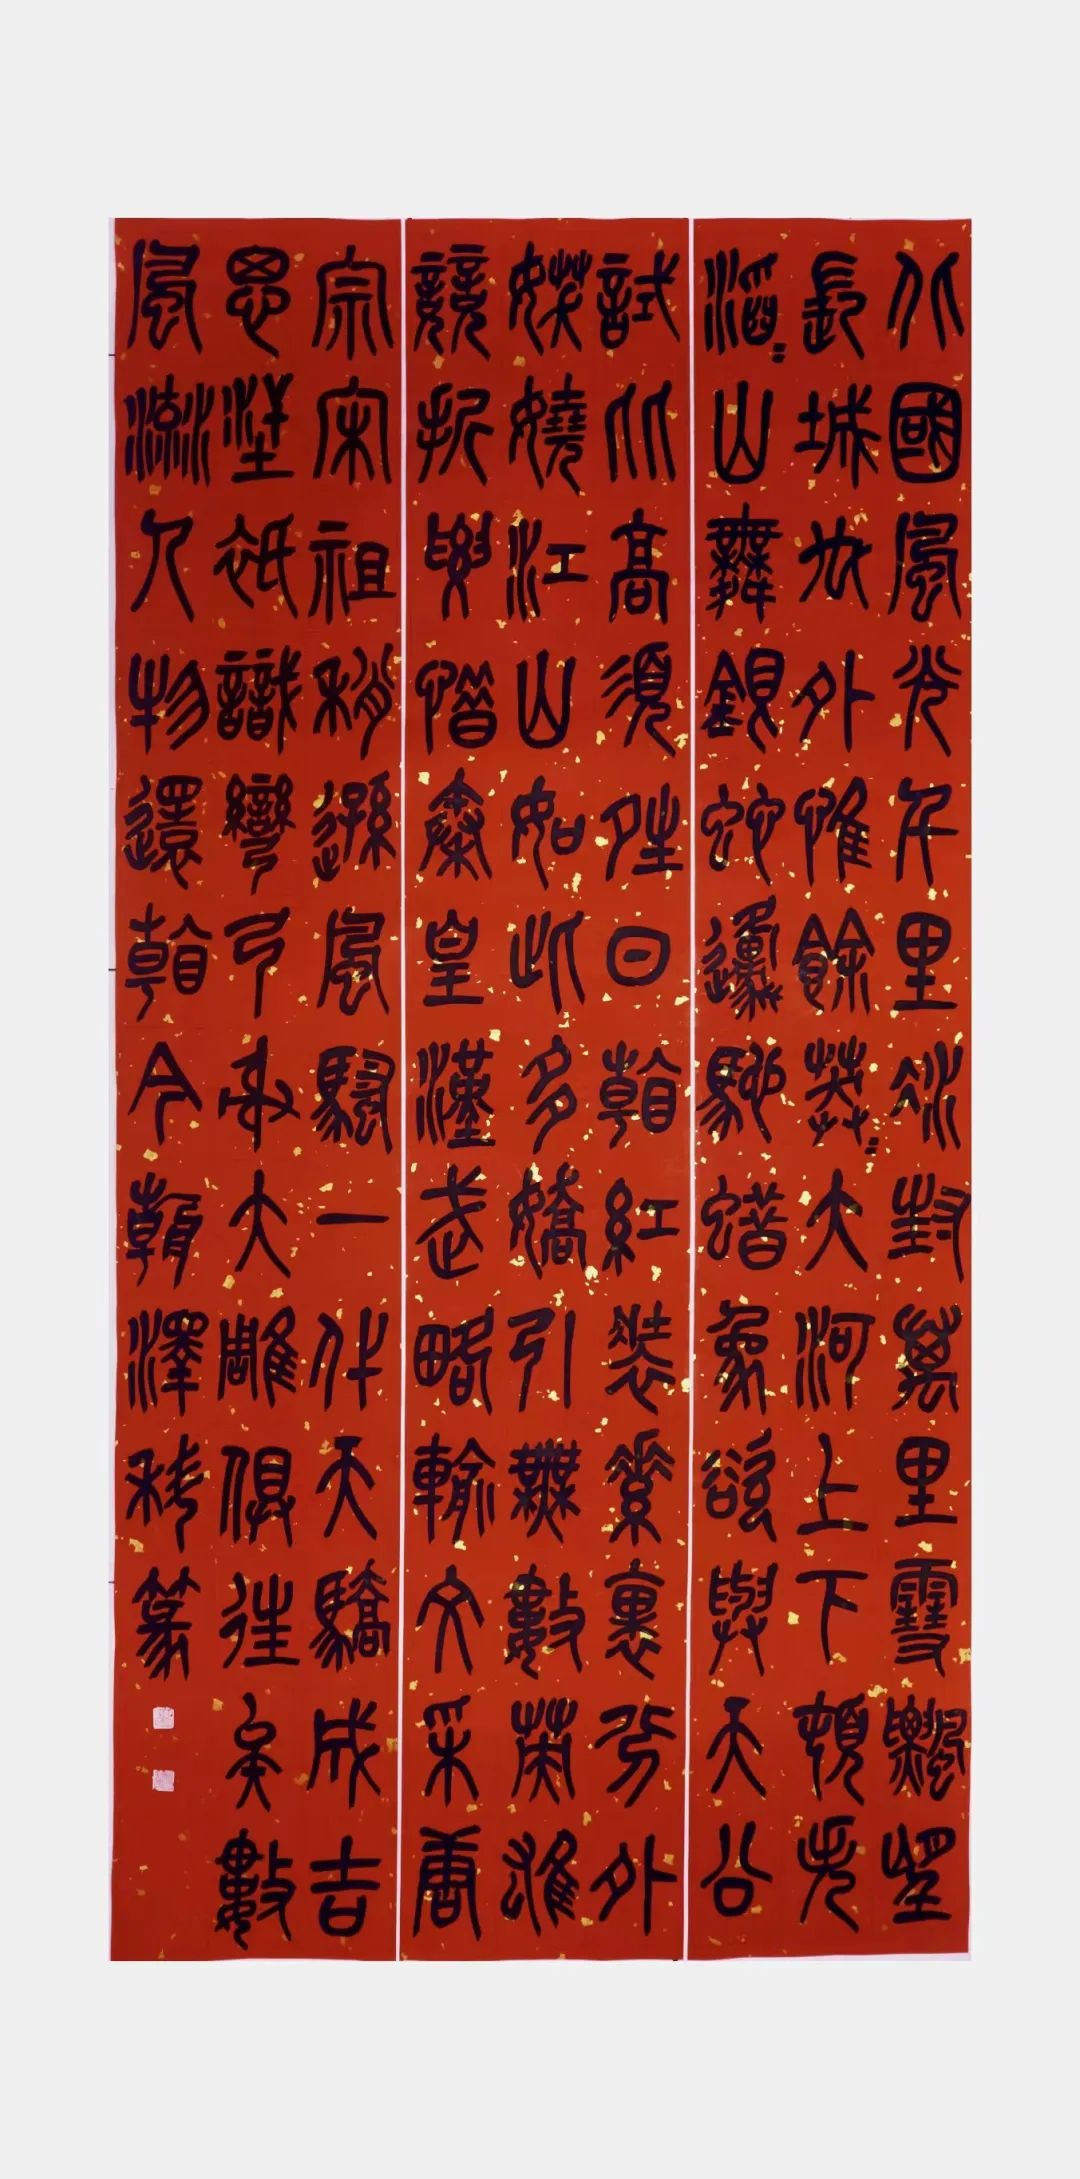 北國風光千里冰封萬里雪飄望
長城内外惟餘莽〻大河上下頓失
滔〻山舞銀蛇原馳蜡象欲與天公
試比高須晴日看紅裝素裹分外
妖嬈江山如此多嬌引無數英雄
競折腰惜秦皇漢武略輸文采唐
宗宋祖稍遜風騷一代天驕成吉
思汗祗識彎弓射大雕俱往矣數
風流人物還看今朝澤篆